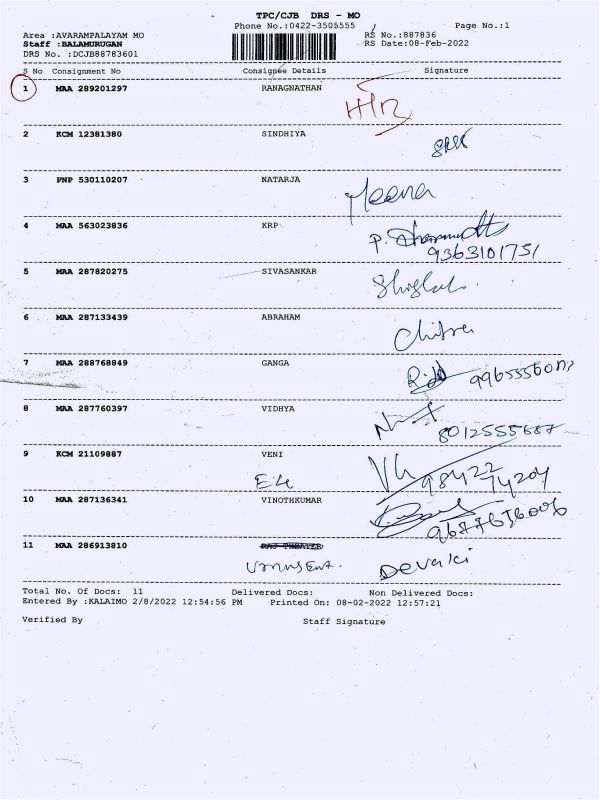 TPC/CJB DRS - MO
Phone No.:0422-3505555 Page No.:1
Area :AVARAMPALAYAM MO RS No.:887836
Staff :BALAMURUGAN RS Date:08-Feb-2022
DRS No. :DCJB88783601
S No Consignment No Consignee Details Signature
1 MAA 289201297 RANAGNATHAN
2 KCM 12381380 SINDHIYA
3 PNP 530110207 NATARJA
Meena
4 MAA 563023836 KRP
P.
9363101751
5 MAA 287820275 SIVASANKAR
6 MAA 287133439 ABRAHAM
Chitra
7 MAA 288768849 GANGA
8 MAA 287760397 VIDHYA
8012555687
9 KCM 21109887 VENI
98422
74204
10 MAA 287136341 VINOTHKUMAR
11 MAA 286913810 RAJ THEATER
Devaki
Total No. Of Docs: 11 Delivered Docs: Non Delivered Docs:
Entered By :KALAIMO 2/8/2022 12:54:56 PM Printed On: 08-02-2022 12:57:21
Verified By Staff Signature